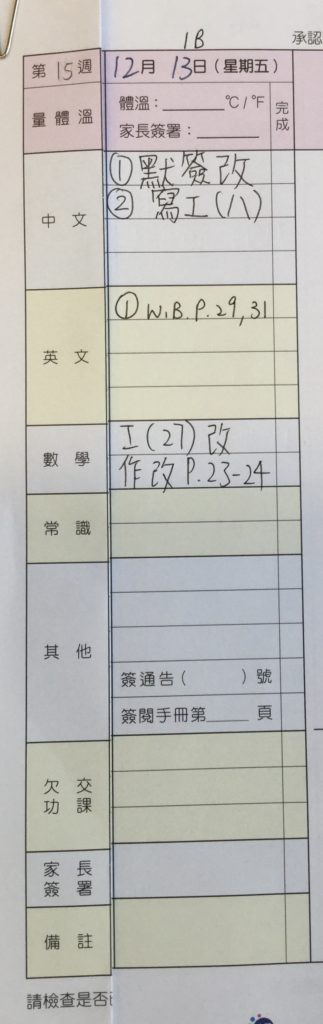 1B
承認
第 15 週 12月 13日(星期五)
量體溫 體溫:______°C/°F 完成
家長簽署:______
中文 ① 默簽改
② 寫工(八)
英文 ① W.B. P. 29, 31
數學 工(27)改
作改 P.23-24
常識
其他
簽通告( )號
簽閱手冊第____頁
欠交功課
家長簽署
備註
請檢查是否